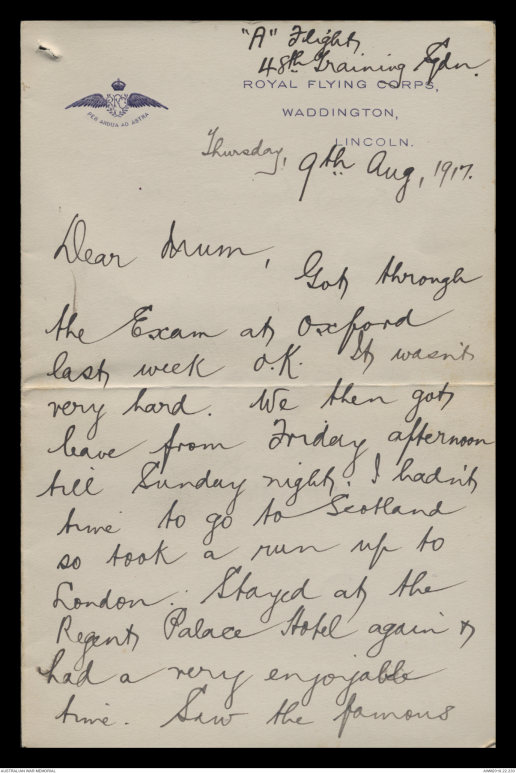 "A" Flight
48th Training Sqdn.
ROYAL FLYING CORPS,
WADDINGTON,
LINCOLN.
PER ARDUA AD ASTRA
Thursday, 9th Aug, 1917.
Dear Mum,
Got through
the Exam at Oxford
last week O.K. It wasn't
very hard. We then got
leave from Friday afternoon
till Sunday night. I hadn't
time to go to Scotland
so took a run up to
London. Stayed at the
Regent Palace Hotel again &
had a very enjoyable
time. Saw the famous
AUSTRALIAN WAR MEMORIAL